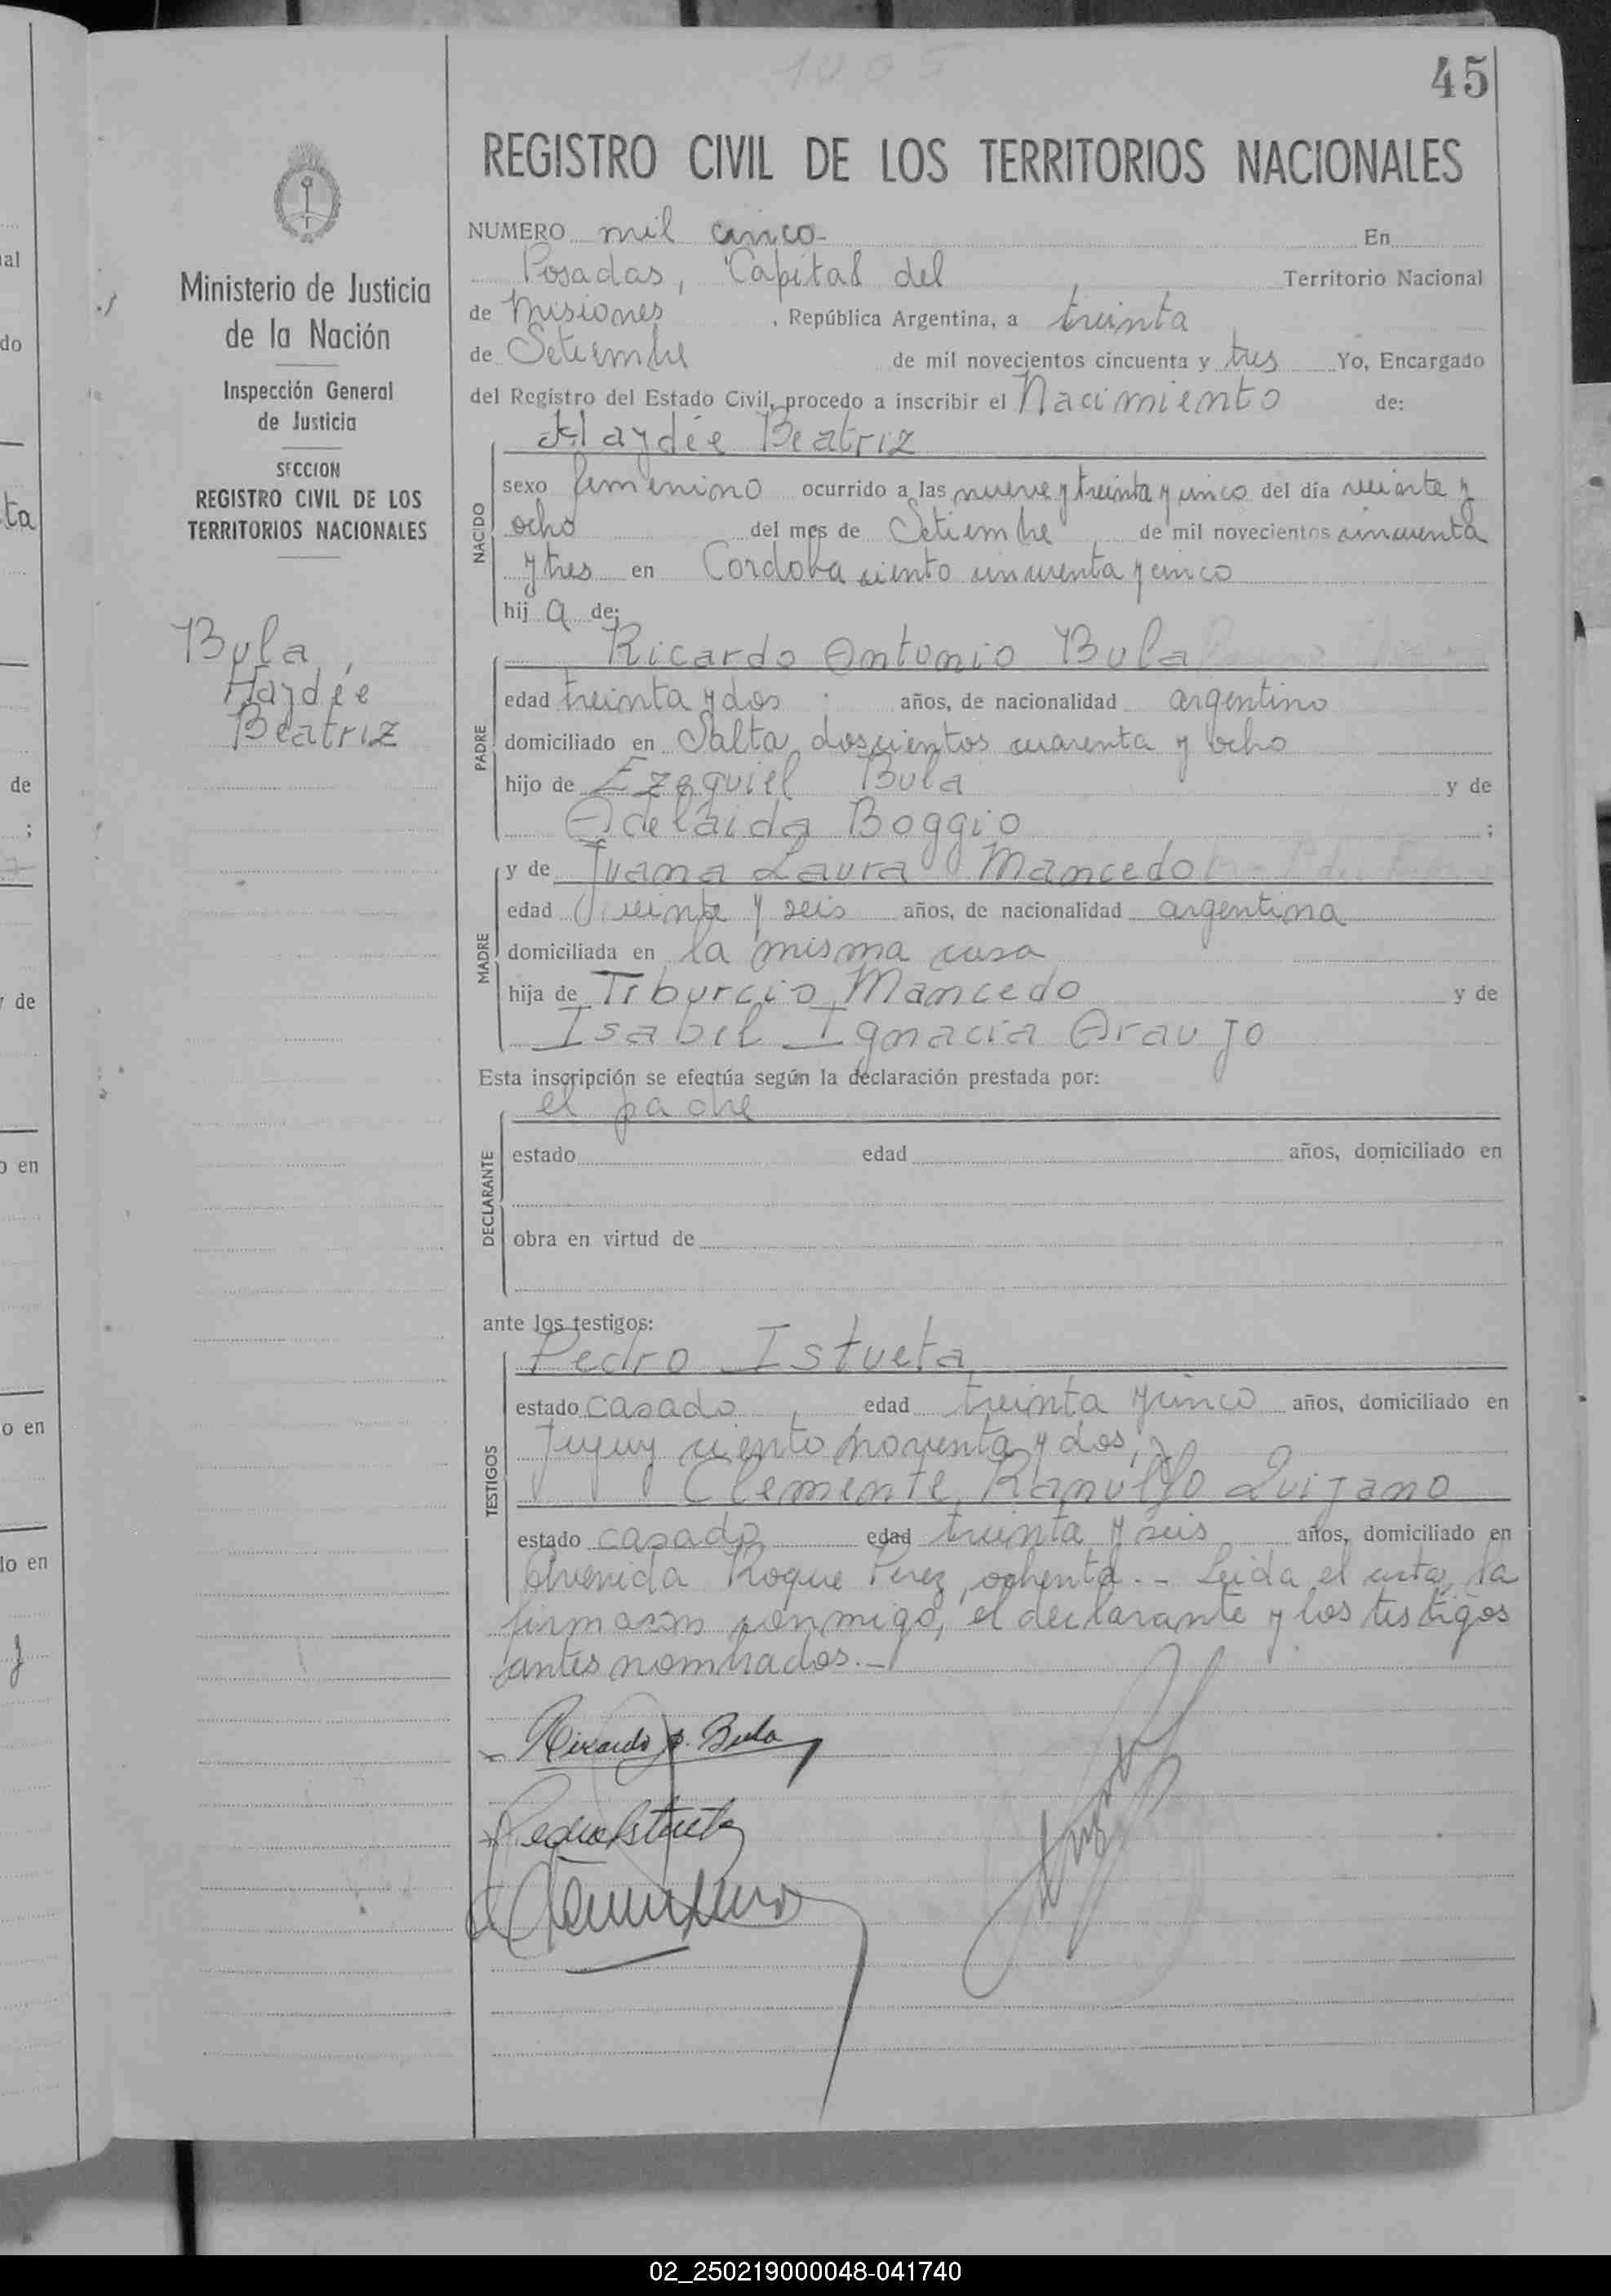 1005
45
REGISTRO CIVIL DE LOS TERRITORIOS NACIONALES
Ministerio de Justicia
de la Nación
Inspección General
de Justicia
SECCION
REGISTRO CIVIL DE LOS
TERRITORIOS NACIONALES
Bula,
Haydée
Beatriz
NUMERO mil cinco- En
Posadas, Capital del Territorio Nacional
de Misiones, República Argentina, a treinta
de Setiembre de mil novecientos cincuenta y tres Yo, Encargado
del Registro del Estado Civil, procedo a inscribir el Nacimiento de:
NACIDO
Haydée Beatriz
sexo femenino ocurrido a las nueve y treinta y cinco del día veinte y
ocho del mes de Setiembre de mil novecientos cincuenta
y tres en Cordoba ciento cincuenta y cinco
hij a de:
PADRE
Ricardo Antonio Bula
edad treinta y dos años, de nacionalidad argentino
domiciliado en Salta doscientos cuarenta y ocho
hijo de Ezequiel Bula y de
Adelaida Boggio ;
MADRE
y de Juana Laura Mancedo
edad veinte y seis años, de nacionalidad argentina
domiciliada en la misma casa
hija de Tiburcio Mancedo y de
Isabel Ignacia Araujo
Esta inscripción se efectúa según la declaración prestada por:
DECLARANTE
el padre
estado edad años, domiciliado en
obra en virtud de
ante los testigos:
TESTIGOS
Pedro Istueta
estado casado edad treinta y cinco años, domiciliado en
Jujuy ciento noventa y dos, y
Clemente Ranulfo Quijano
estado casado edad treinta y seis años, domiciliado en
Avenida Roque Perez, ochenta.- Leida el acta, la
firmaron conmigo, el declarante y los testigos
antes nombrados.-
Ricardo A. Bula
Pedro Istueta
02_250219000048-041740